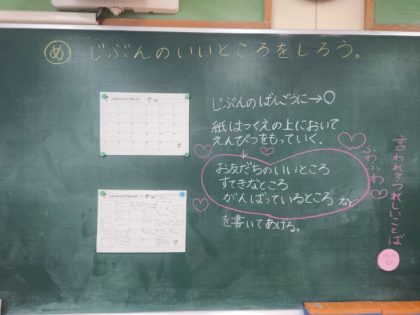 め じぶんのいいところをしろう。
じぶんのばんごうに→○
紙はつくえの上において
えんぴつをもっていく。
お友だちのいいところ
すてきなところ
がんばっているところ など
を書いてあげる。
ふわふわ
言われてうれしいことば